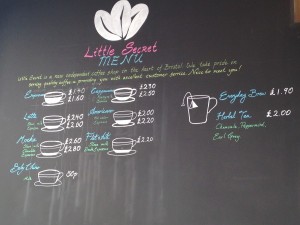 Little Secret
MENU
Little Secret is a new independent coffee shop in the heart of Bristol. We take pride in
serving quality coffee & providing you with excellent customer service. Nice to meet you!
Espresso
£1.40
£1.60
Cappuccino
£2.30
£2.50
Latte
£2.40
Americano
£2.00
£2.20
Mocha
£2.60
£2.80
Flat white
£2.20
Baby Chino
50p
Everyday Brew £1.90
Herbal Tea £2.00
Chamomile, Peppermint,
Earl Grey